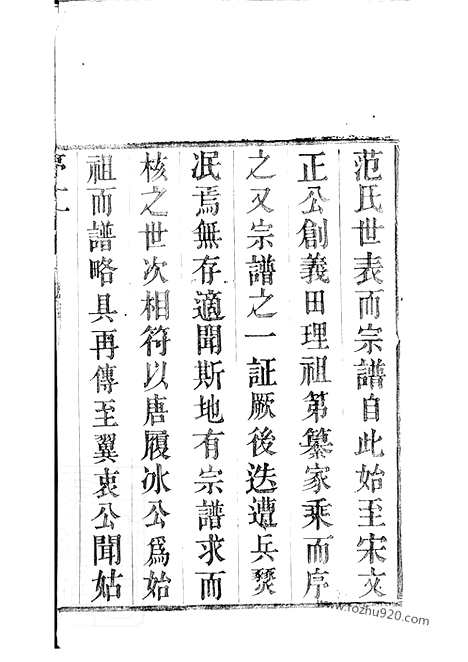 范氏世表而宗譜自此始至宋文
正公創義田理祖第纂家乘而序
之又宗譜之一証厥後迭遭兵燹
泯焉無存適聞斯地有宗譜求而
核之世次相符以唐履冰公爲始
祖而譜略具再傳至翼衷公聞姑
www.fozhu920.com